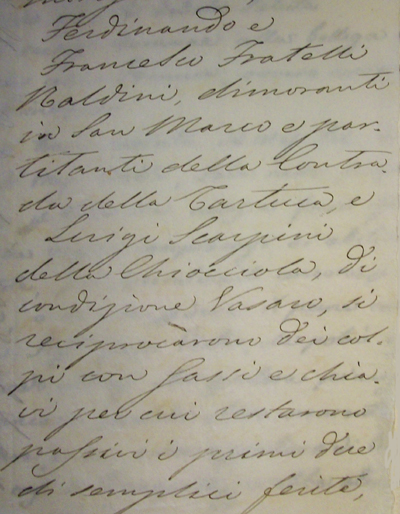 Ferdinando e
Francesco Fratelli
Baldini, dimoranti
in San Marco e par-
titanti della Contra-
da della Tartuca, e
Luigi Scarpini
della Chiocciola, di
condizione Vasaro, si
reciprocarono dei col-
pi con sassi e chia-
vi per cui restarono
passivi i primi due
di semplici ferite,